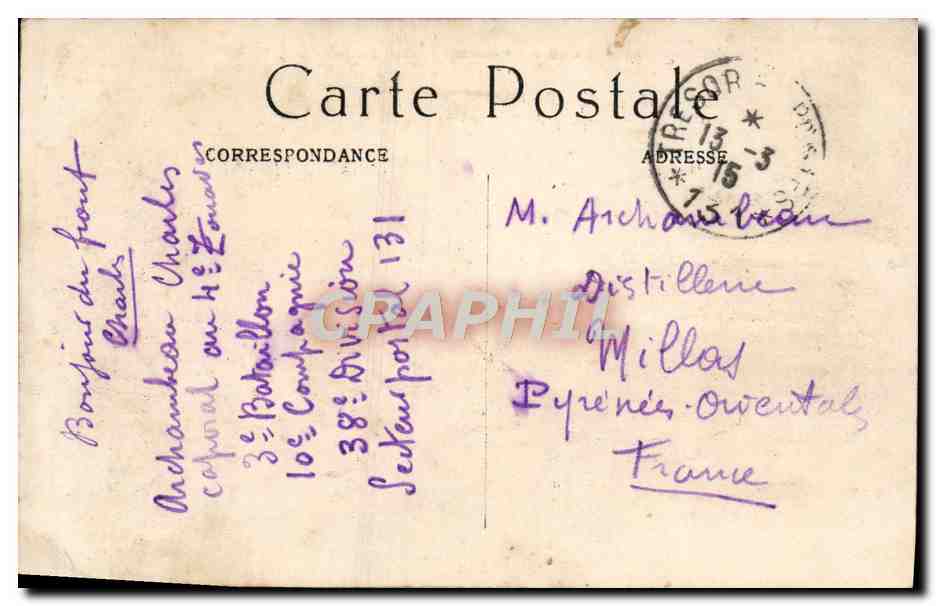 Carte Postale
CORRESPONDANCE
ADRESSE
TRESOR
13 -3
15
131
Bonjour du front
Charles
Archambeau Charles
caporal au 4e Zouaves
3e Bataillon
10e Compagnie
38e Division
Secteur postal 131
M. Archambeau
Distillerie
Millas
Pyrénées-Orientales
France
CPAPHIL